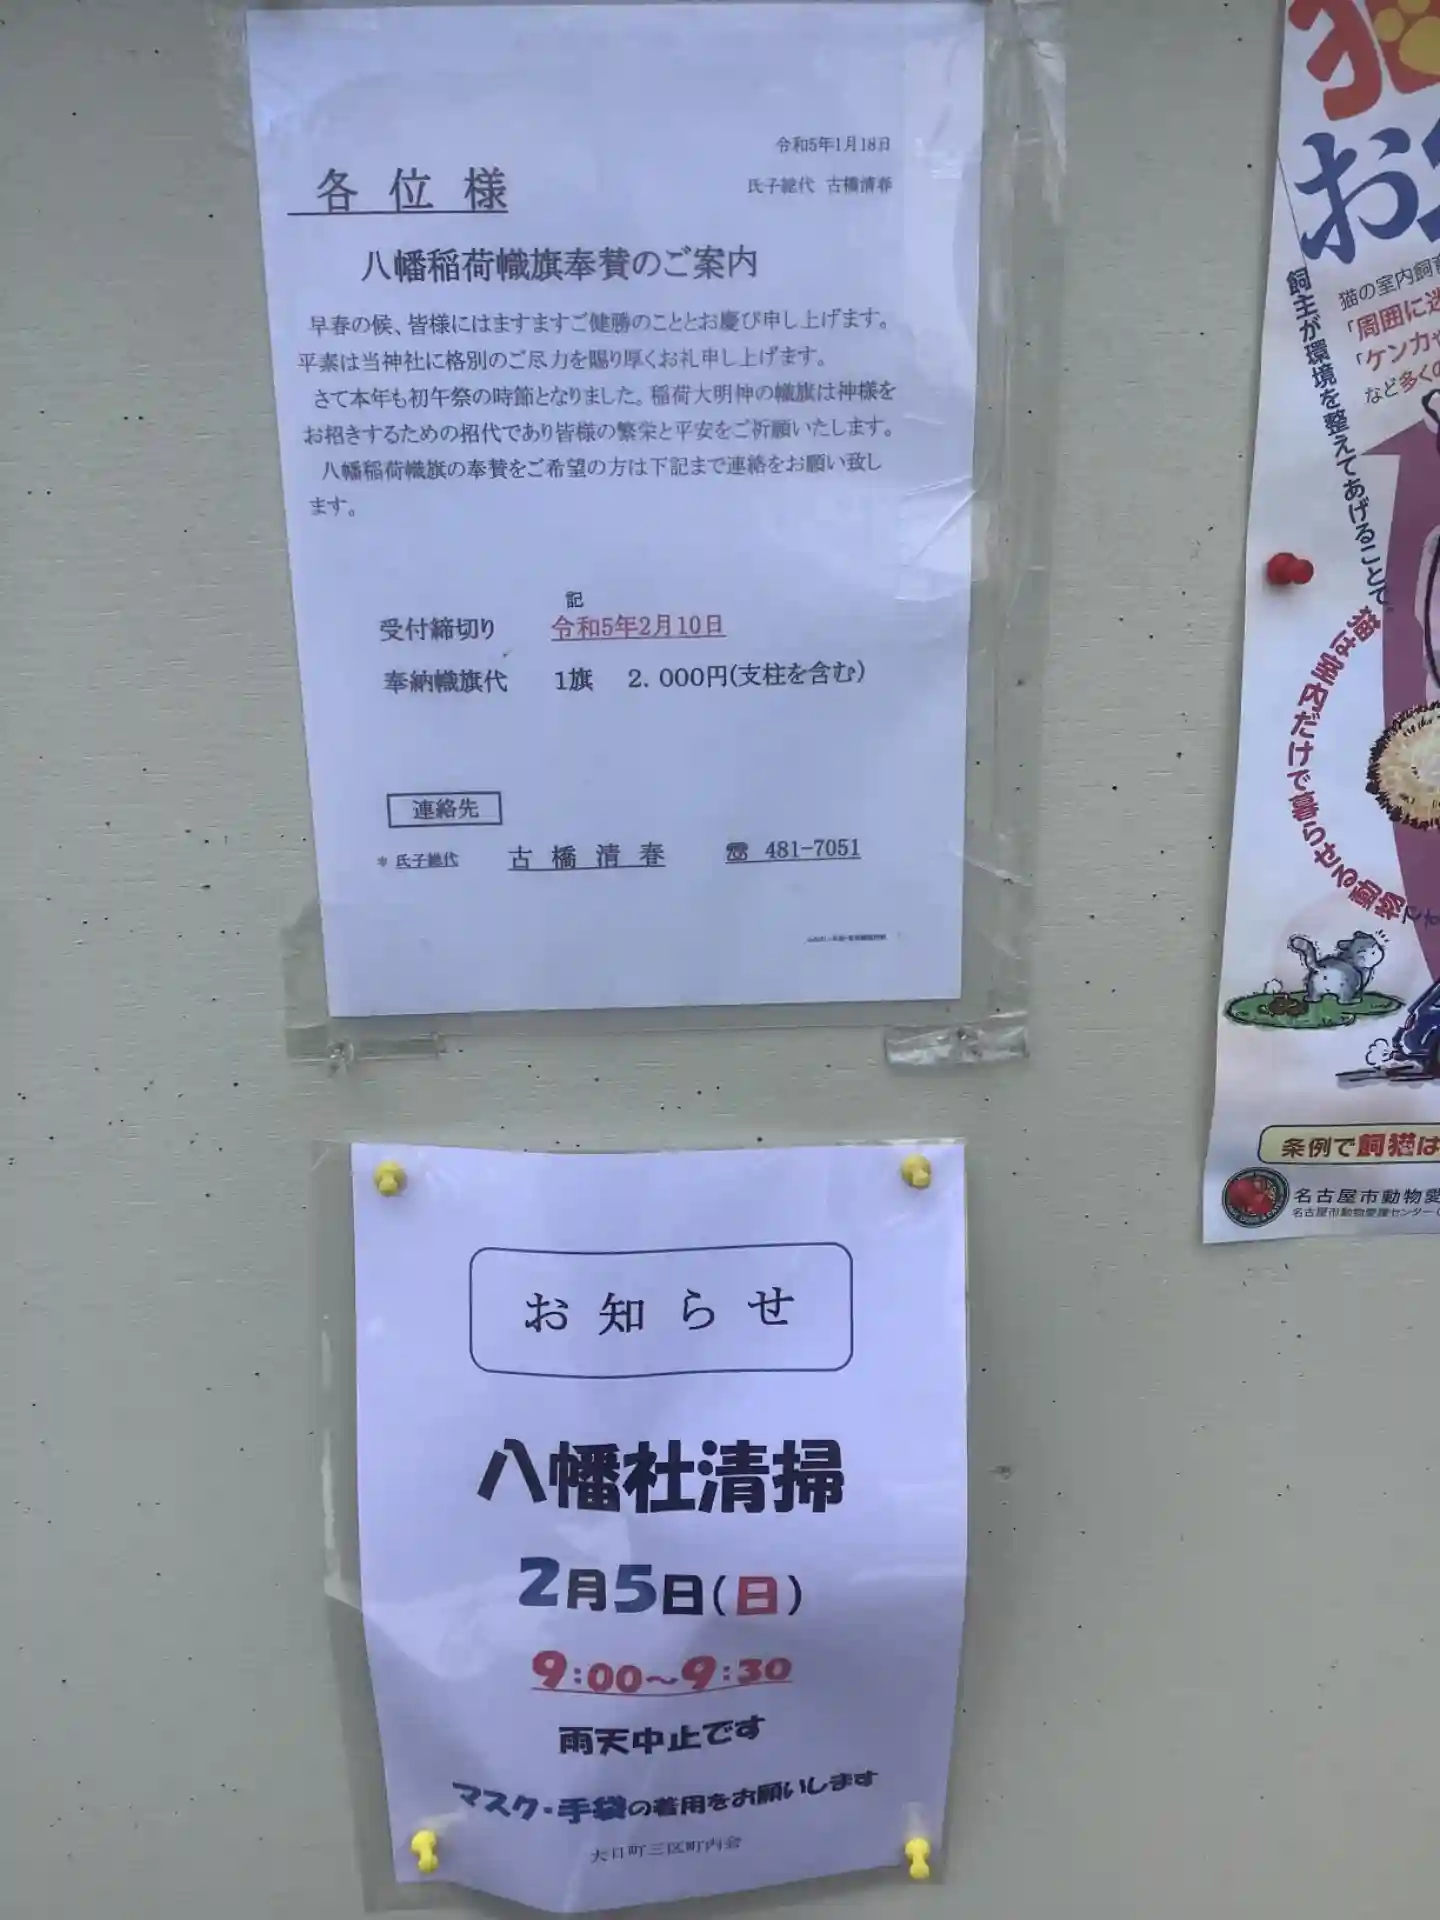 令和5年1月18日
氏子総代 古橋清春
各位様
八幡稲荷幟旗奉賛のご案内
早春の候、皆様にはますますご健勝のこととお慶び申し上げます。
平素は当神社に格別のご尽力を賜り厚くお礼申し上げます。
さて本年も初午祭の時節となりました。稲荷大明神の幟旗は神様を
お招きするための招代であり皆様の繁栄と平安をご祈願いたします。
八幡稲荷幟旗の奉賛をご希望の方は下記まで連絡をお願い致し
ます。
記
受付締切り 令和5年2月10日
奉納幟旗代 1旗 2.000円(支柱を含む)
連絡先
* 氏子総代 古橋清春 ☎ 481-7051
お知らせ
八幡社清掃
2月5日(日)
9:00~9:30
雨天中止です
マスク・手袋の着用をお願いします
大日町三区町内会
猫
お
飼主が環境を整えてあげることで、
猫の室内飼
「周囲に迷
「ケンカや
など多くの
猫は室内だけで暮らせる動物です
条例で飼猫は
名古屋市動物愛
名古屋市動物愛護センター